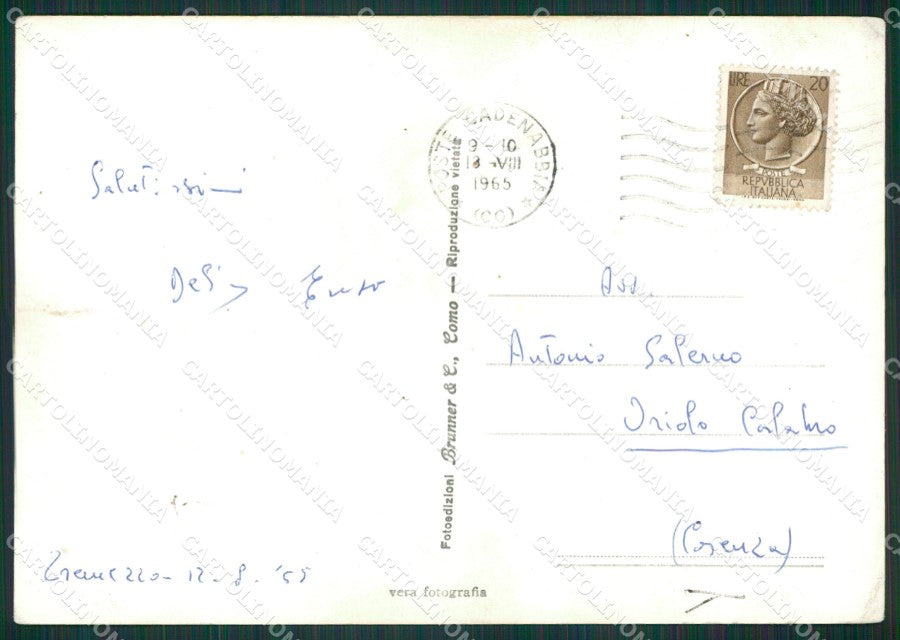 Salutissimi
Enzo
Tremezzo - 12 - 8 - '65
POSTE CADENABBIA *
9 - 10
18 -VIII
1965
(CO)
LIRE 20
POSTE
REPVBBLICA
ITALIANA
Fotoedizioni Brunner & C., Como — Riproduzione vietata
Antonio Salerno
Oriolo Calabro
(Cosenza)
vera fotografia
CARTOLINOMANIA